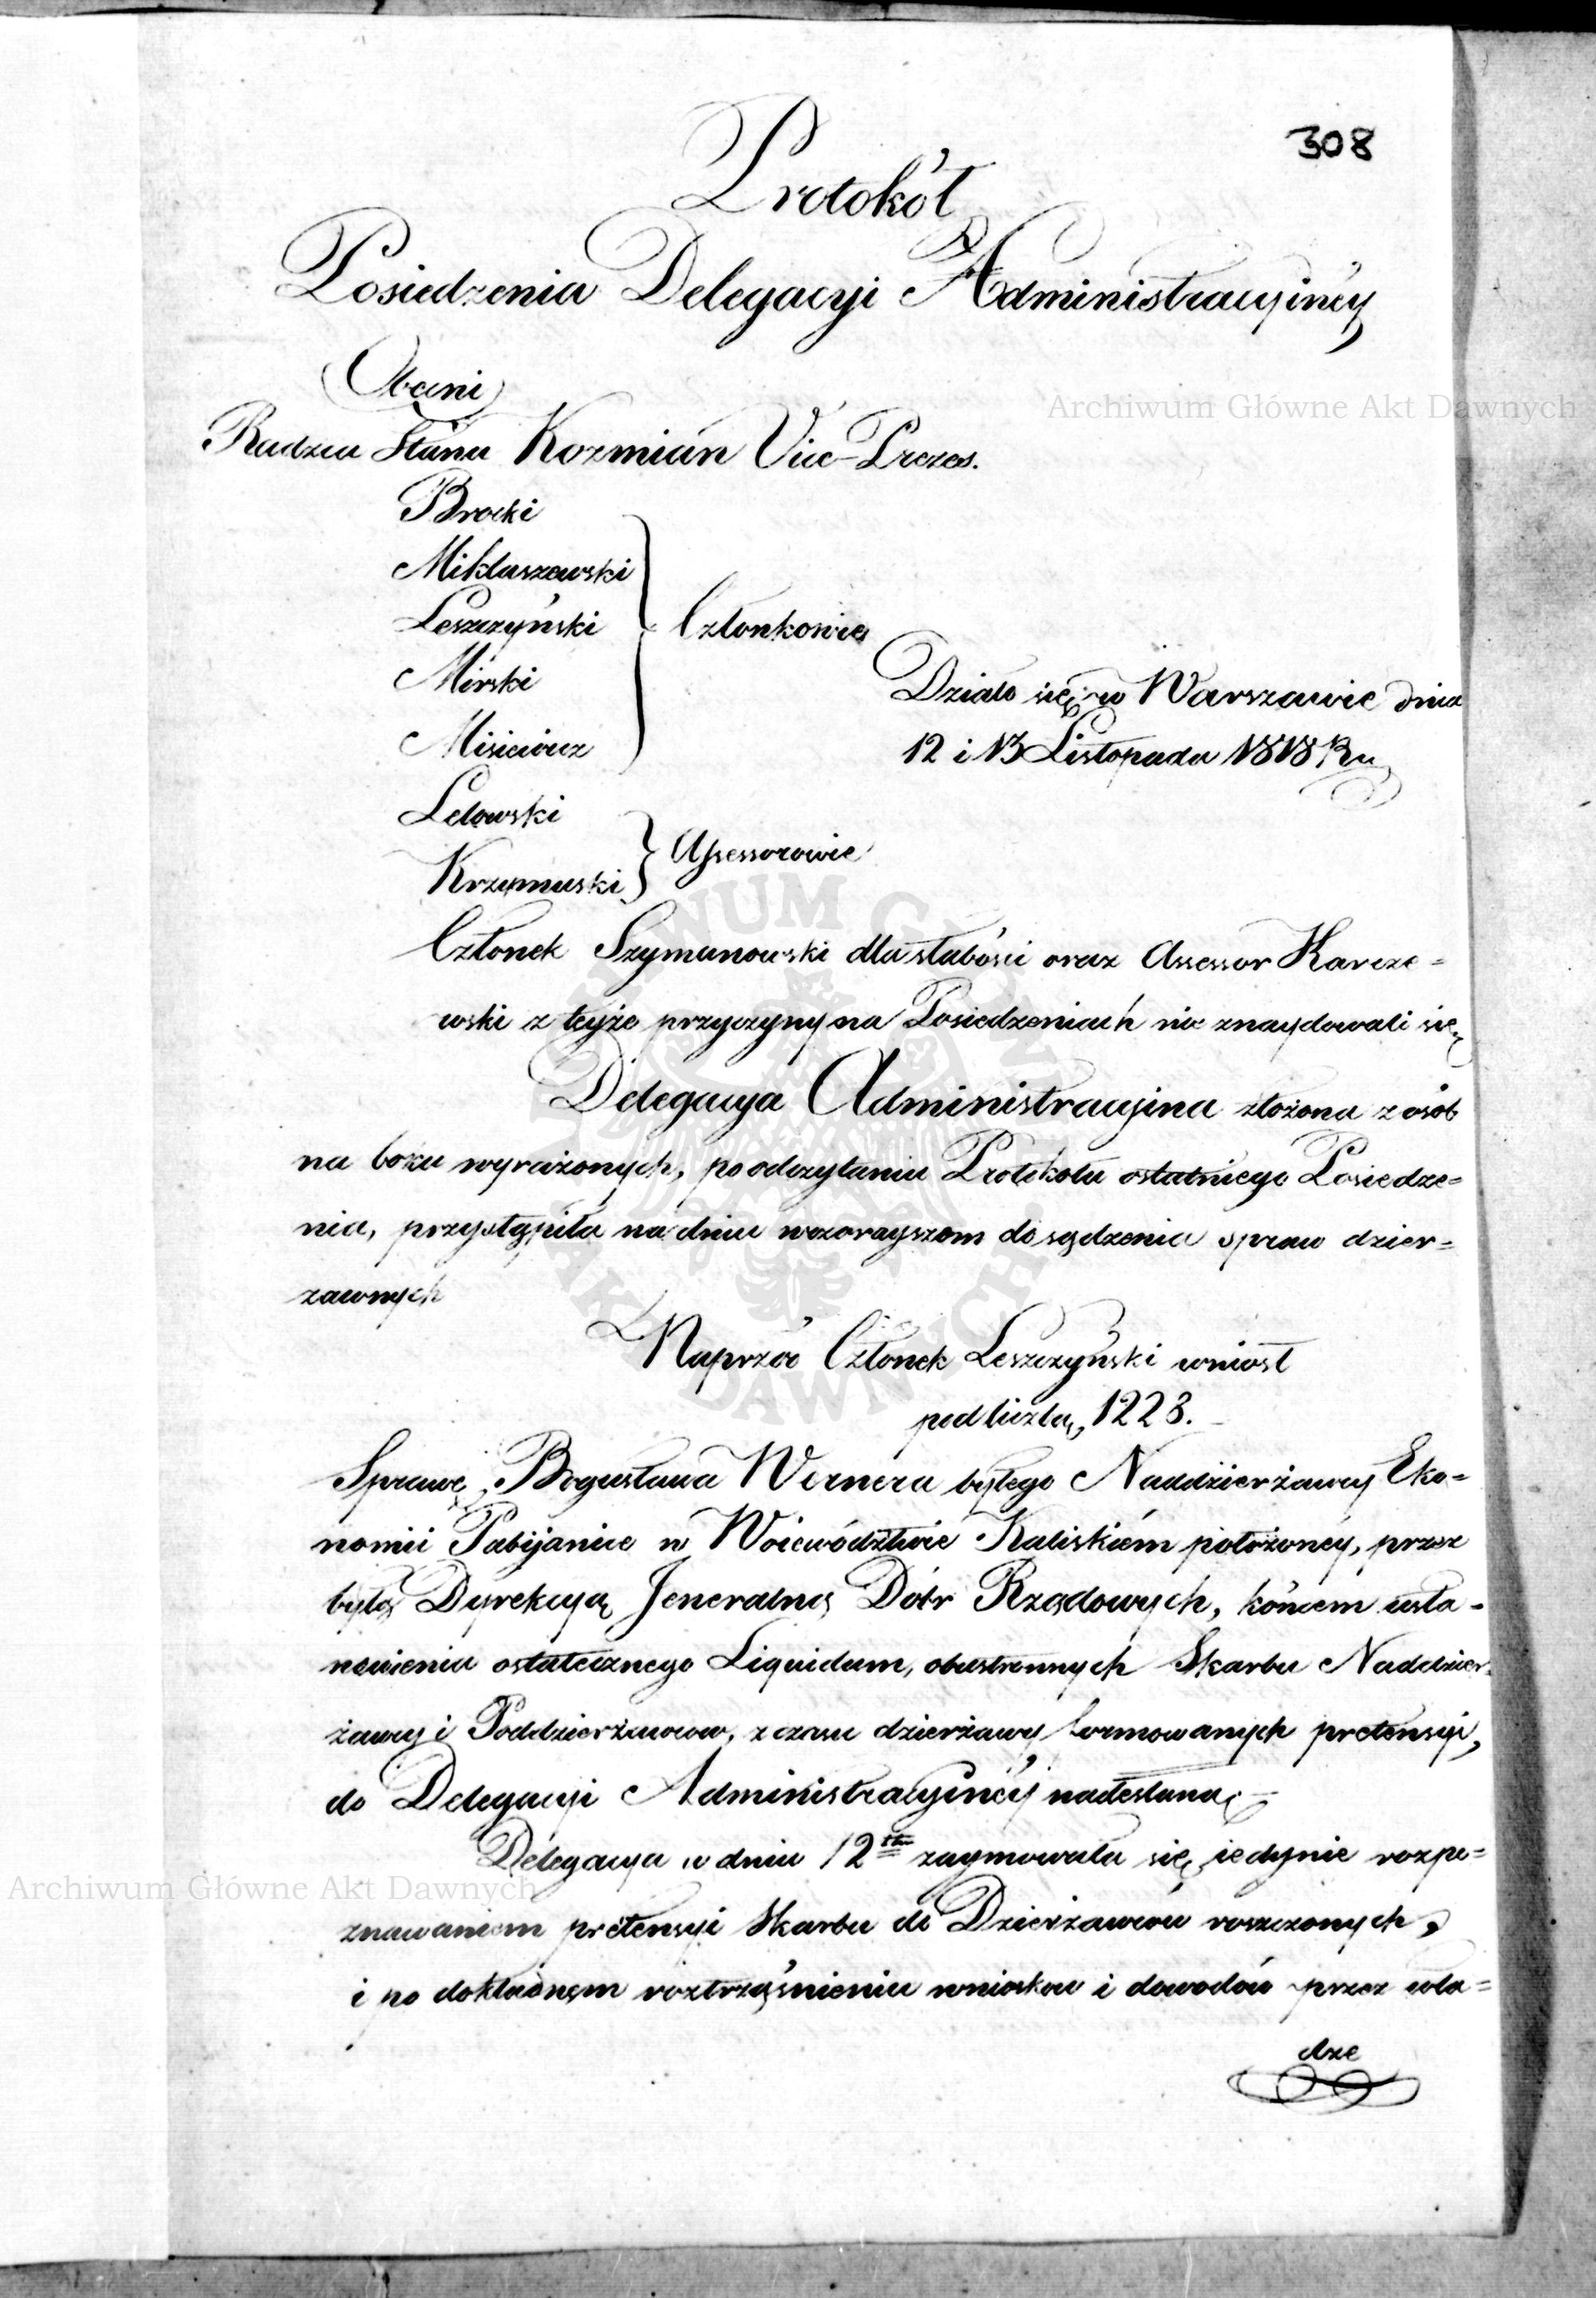 308
Protokół
Posiedzenia Delegacyi Administracyinéy
Obecni
Radzca Stanu Kozmian Vice-Prezes.
Brocki
Miklaszewski
Leszczyński
Mirski
Misiewicz
Członkowie
Działo się w Warszawie dnia
12 i 13 Listopada 1818 Ru
Lelowski
Krzymuski
Assessorowie
Członek Szymanowski dla słabości oraz Assessor Karcze=
wski z teyże przyczyny na Posiedzeniach nie znaydowali się
Delegacya Administracyina złożona z osób
na boku wyrażonych, po odczytaniu Protokołu ostatniego Posiedze=
nia, przystąpiła na dniu wczorayszem do sądzenia spraw dzier=
zawnych
Naprzód Członek Leszczyński wniosł
pod liczbą 1223.
Sprawę Bogusława Wernera byłego Naddzierżawcy Eko=
nomii Pabijanice w Woiewództwie Kaliskiém położonéy, przez
byłą Dyrekcyą Jeneralną Dóbr Rządowych, końcem usta=
nowienia ostatecznego Liquidum, obustronnych Skarbu Naddzier=
żawcy i Poddzierżawców, z czasu dzierżawy formowanych pretensyi,
do Delegacyi Administracyinéy nadesłaną.—
Delegacya w dniu 12tm zaymowała się iedynie rozpo=
znawaniem pretensyi Skarbu do Dzierżawców roszczonych,
i po dokładnem roztrząśnieniu wniosków i dowodów przez wła=
dze
Archiwum Główne Akt Dawnych
Archiwum Główne Akt Dawnych
ARCHIWUM GŁÓWNE AKT DAWNYCH